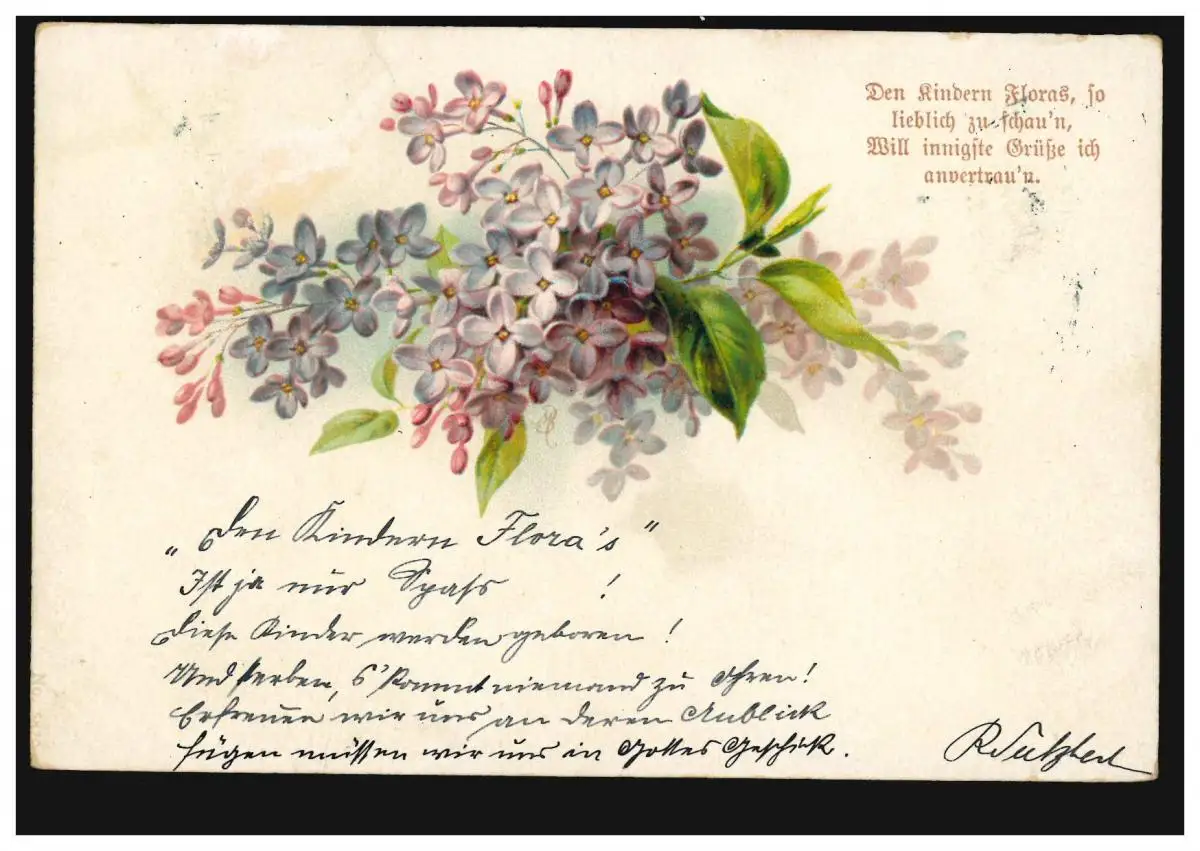 Den Kindern Floras, so
lieblich zu schau'n,
Will innigste Grüße ich
anvertrau'n.
„Den Kindern Flora's"
Ist ja nur Spaß !
Diese Kinder werden geboren !
Und sterben, s'kommt niemand zu Ohren!
Erfreuen wir uns an deren Anblick
fügen müssen wir uns in Gottes Geschick.